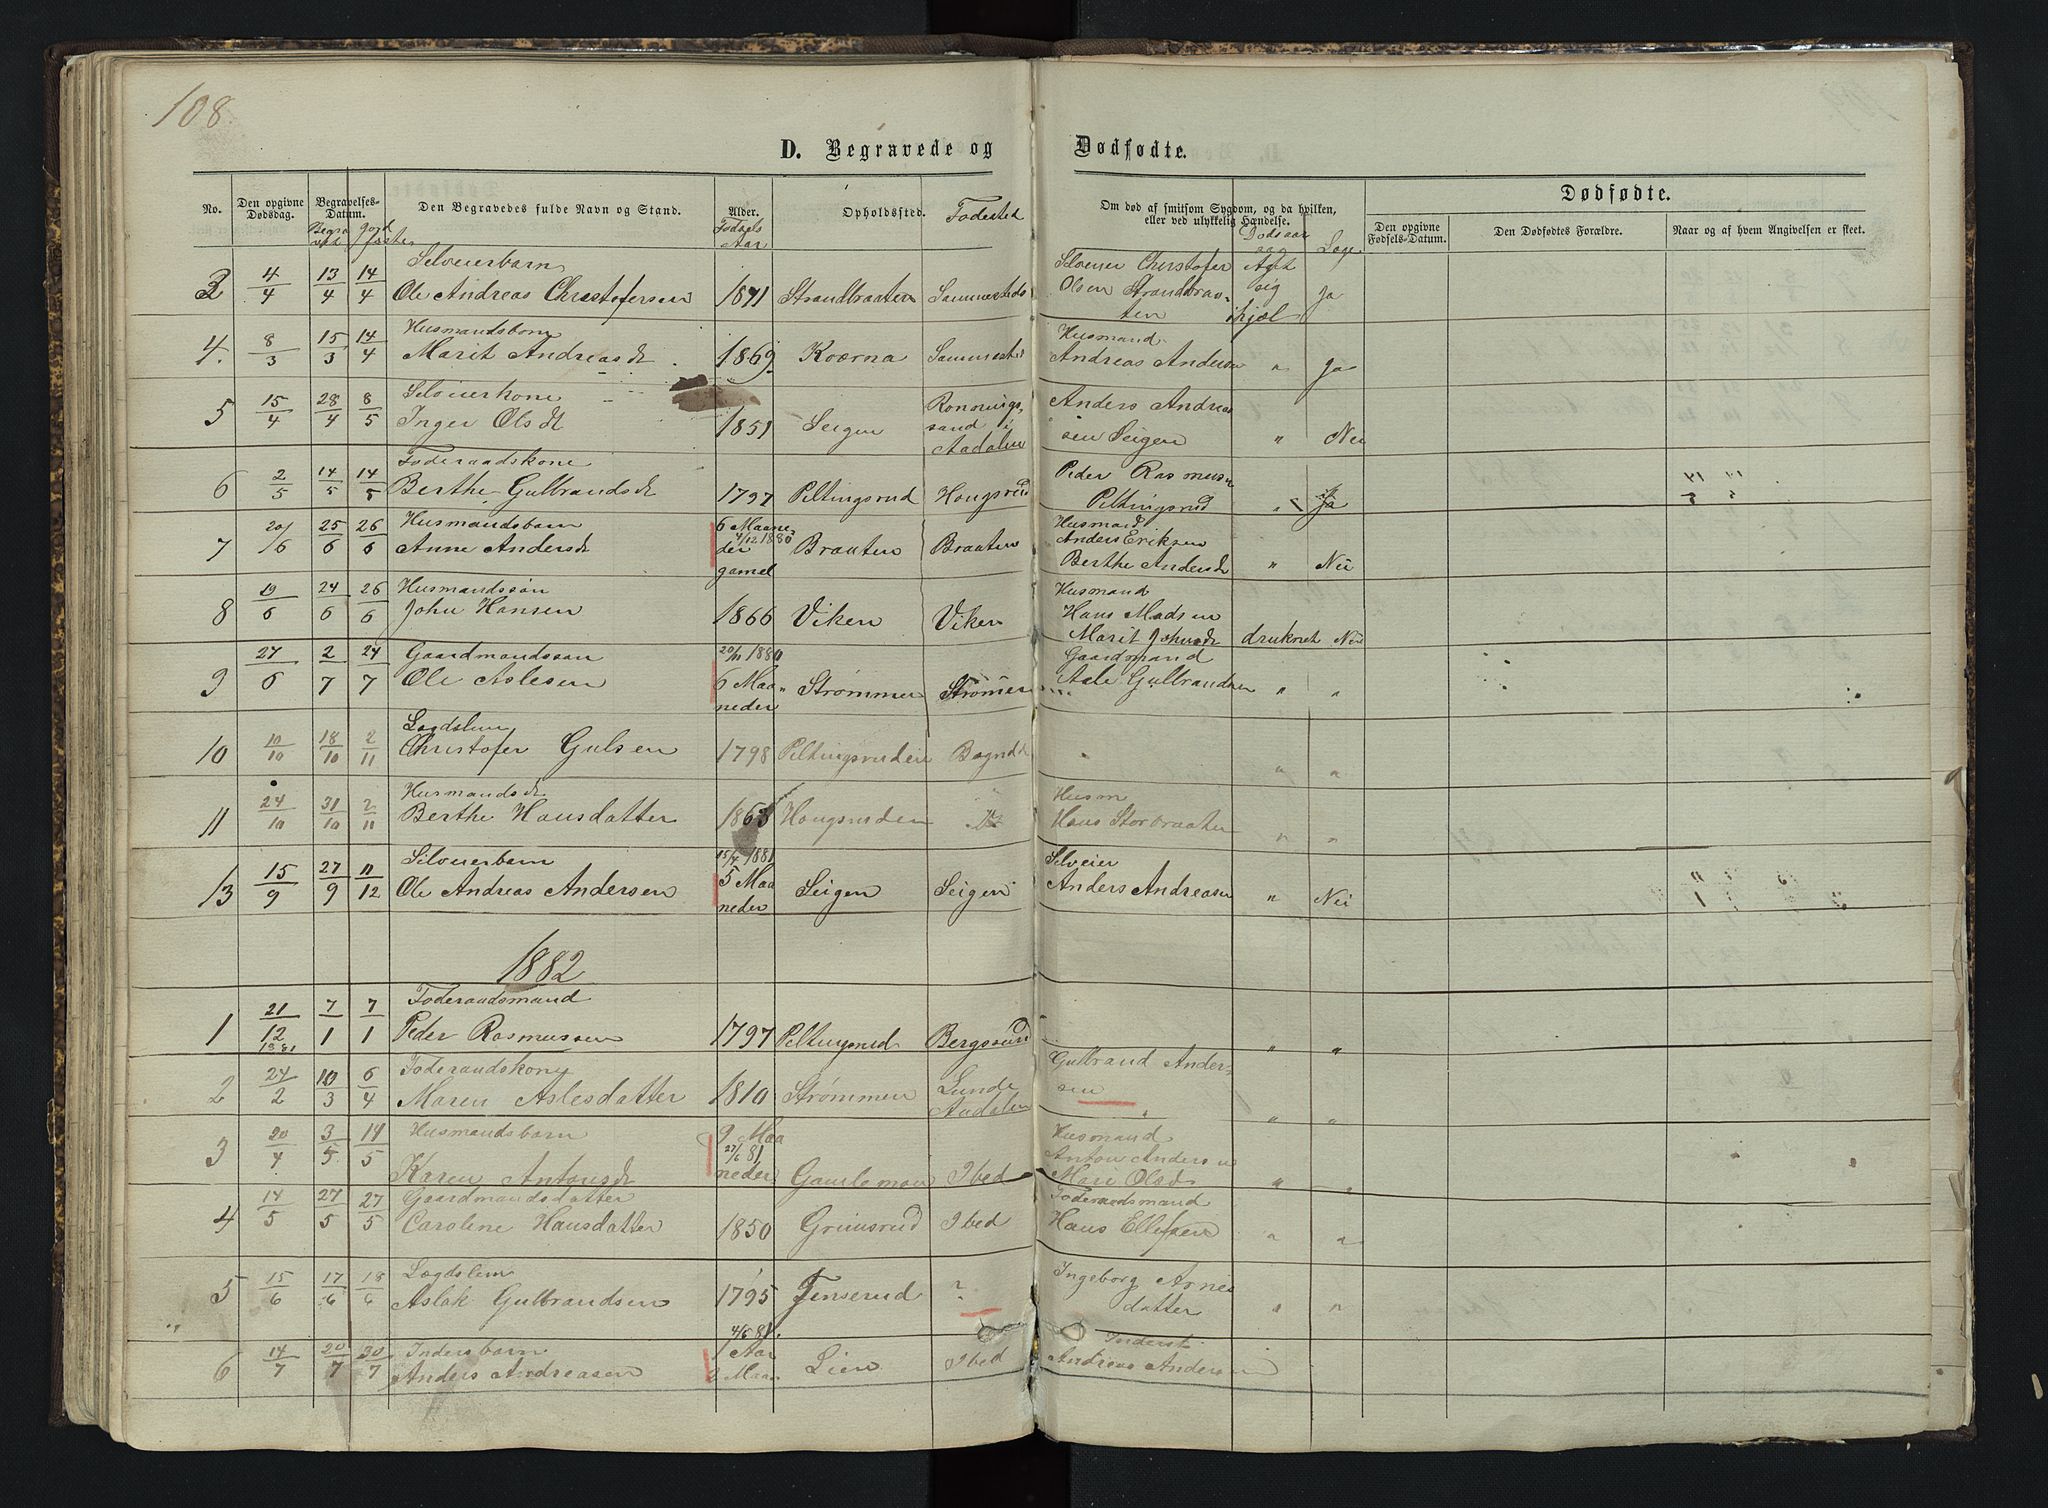 108.
D. Begravede og Dødfødte.
No. Den opgivne Dødsdag. Begravelses-Datum. Den Begravedes fulde Navn og Stand. Alder. Opholdssted. Fødested Om død af smitsom Sygdom, og da hvilken, eller ved ulykkelig Hændelse. Dødfødte.
Fødsels Aar
Den opgivne Fødsels-Datum. Den Dødfødtes Forældre. Naar og af hvem Angivelsen er skeet.
3 4/4 13/4 14/4 Selveierbarn
Ole Andreas Christofersen 1871 Strandbraaten Sammesteds Selveier Christofer Olsen Strandbraaten ihjel Ja
4. 8/3 15/3 14/4 Husmandsbarn
Marit Andreasdt. 1869 Koærna Sammested Husmand Andreas Andersen " Ja
5 15/4 28/4 8/5 Selveierkone
Inger Olsdt 1851 Seigen Ronningssand i Aadalen Anders Andreassen Seigen " Nei
6 2/5 14/5 14/5 Foderaadskone
Berthe Gulbrandsdt 1797 Peltingsrud Hougsrud Peder Rasmusen Peltingsrud " Ja
7 20/6 25/6 26/6 Husmandsbarn
Anne Andersdt 6 Maaneder gamel 4/12 1880 Braaten Braaten Husmand Anders Eriksen Berthe Andersdt " Nei
8 19/6 24/6 26/6 Husmandssøn
John Hansen 1866 Viken Viken Husmand Hans Madsen Marit Johnsdt druknet Nei
9 27/6 2/7 24/7 Gaardmandssøn
Ole Aslesen 20/11 1880 6 Maaneder Strømmen Strømmen Gaardmand Asle Gulbrandsen " "
10 10/10 18/10 2/11 Lægdslem
Christofer Gulsen 1798 Peltingsruden " "
11 24/10 31/10 2/11 Husmandsdt
Berthe Hansdatter 1863 Hougsruden Husm Hans Storbraaten " "
13 15/9 27/9 11/12 Selveierbarn
Ole Andreas Andersen 15/4 1881 5 Maaneder Seigen Seigen Selveier Anders Andreasen " Nei
1882
1 21/12 1881 7/1 7/1 Foderaadsmand
Peder Rasmussen 1797 Peltingsrud Bergsund " "
2 24/2 10/3 6/4 Foderaadskone
Maren Aslesdatter 1810 Strømmen Lunde Aadalen Gulbrand Andersen " "
3 20/4 3/5 14/5 Husmandsbarn
Karen Antonsdt 9 Maaneder 27/6 81 Gamlemoen Ibed Husmand Anton Andersen Mari Olsdt " "
4 14/5 27/5 27/5 Gaardmandsdatter
Caroline Hansdatter 1850 Grimsrud Ibed Foderaadsmand Hans Ellefsen " "
5 15/6 17/6 18/6 Lægdslem
Aslak Gulbrandsen 1795 Jenserud ? Ingeborg Arnesdatter " "
6 14/7 20/7 30/7 Inderstbarn
Anders Andreasen 4/6 81. 1 Aar Maa Lien Ibed Inderst Andreas Andersen